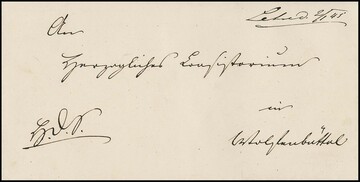 An
Herzogliches Consistorium
in
H. D. S.
Wolfenbüttel